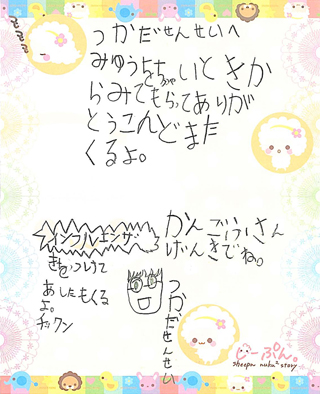 つかだせんせいへ
みゆうをちっちゃいときか
らみてもらってありが
とうこんどまた
くるよ。
インフルエンザ
きをつけて
あしたもくる
よ。
チックン
かんごふさん
げんきでね。
つかだせんせい
しーぷん。
sheepn nuku² story